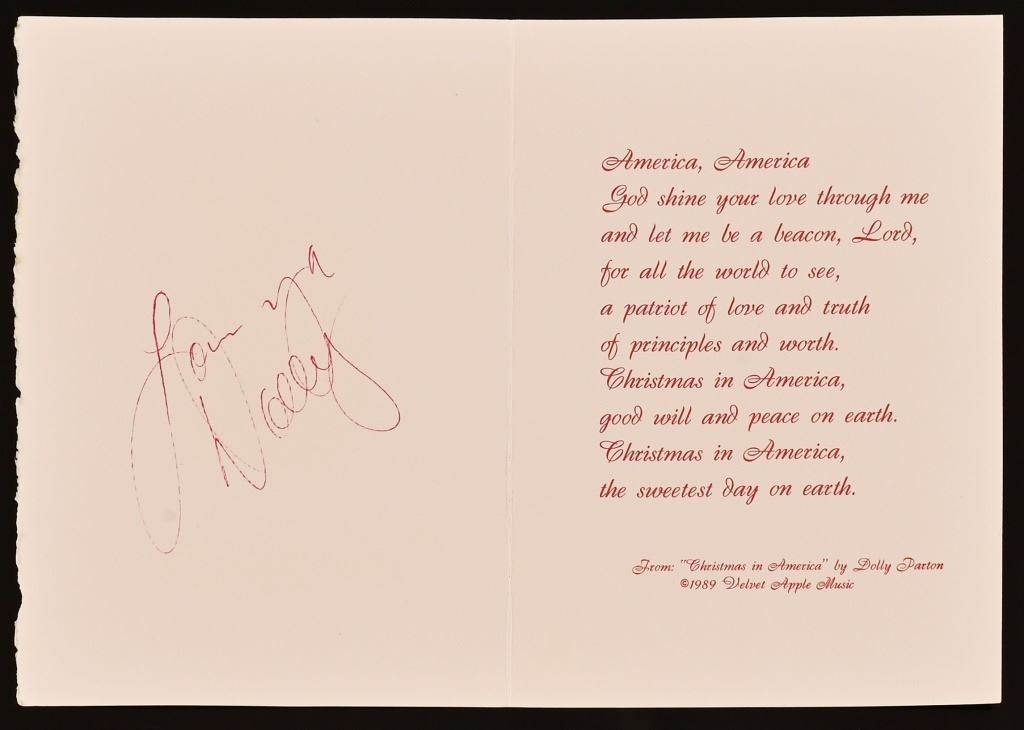 Love ya
Dolly
America, America
God shine your love through me
and let me be a beacon, Lord,
for all the world to see,
a patriot of love and truth
of principles and worth.
Christmas in America,
good will and peace on earth.
Christmas in America,
the sweetest day on earth.
From: "Christmas in America" by Dolly Parton
©1989 Velvet Apple Music